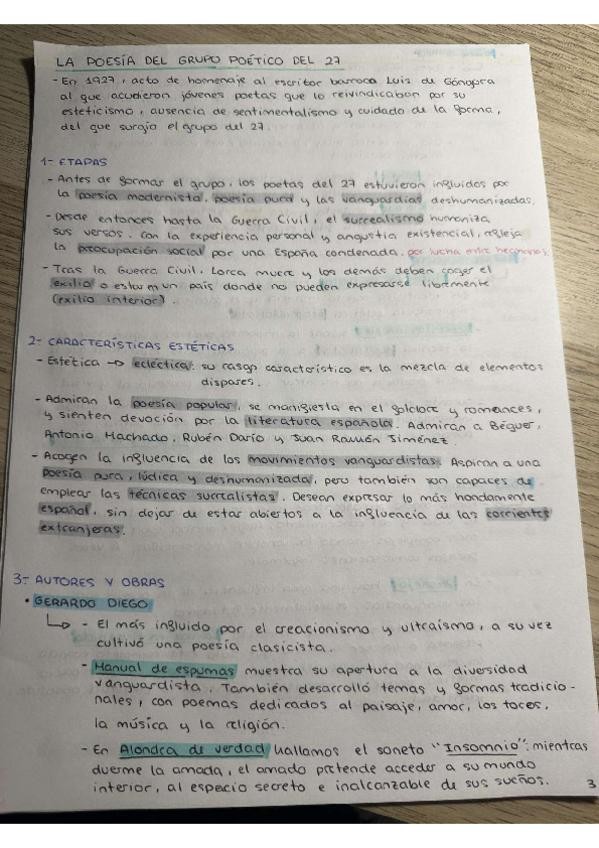 LA POESÍA DEL GRUPO POÉTICO DEL 27
- En 1927, acto de homenaje al escritor barroco Luis de Góngora
al que acudieron jóvenes poetas que lo reivindicaban por su
esteticismo, ausencia de sentimentalismo y cuidado de la forma,
del que surgió el grupo del 27.
1- ETAPAS
- Antes de formar el grupo, los poetas del 27 estuvieron influidos por
la poesía modernista, poesía pura y las vanguardias deshumanizadas.
- Desde entonces hasta la Guerra Civil, el surrealismo humaniza
sus versos. Con la experiencia personal y angustia existencial, refleja
la preocupación social por una España condenada. por lucha entre hermanos.
- Tras la Guerra Civil, Lorca muere y los demás deben coger el
exilio o estar en un país donde no pueden expresarse libremente
(exilio interior).
2- CARACTERÍSTICAS ESTÉTICAS
- Estética → ecléctica: su rasgo característico es la mezcla de elementos
dispares.
- Admiran la poesía popular, se manifiesta en el folclore y romances,
y sienten devoción por la literatura española. Admiran a Béquer,
Antonio Machado, Rubén Darío y Juan Ramón Jiménez.
- Acogen la influencia de los movimientos vanguardistas. Aspiran a una
poesía pura, lúdica y deshumanizada, pero también son capaces de
emplear las técnicas surrealistas. Desean expresar lo más hondamente
español, sin dejar de estar abiertos a la influencia de las corrientes
extranjeras.
3- AUTORES Y OBRAS
• GERARDO DIEGO
↳ - El más influido por el creacionismo y ultraísmo, a su vez
cultivó una poesía clasicista.
- Manual de espumas muestra su apertura a la diversidad
vanguardista. También desarrolló temas y formas tradicio-
nales, con poemas dedicados al paisaje, amor, los toros,
la música y la religión.
- En Alondra de verdad hallamos el soneto "Insomnio": mientras
duerme la amada, el amado pretende acceder a su mundo
interior, al espacio secreto e inalcanzable de sus sueños.
3